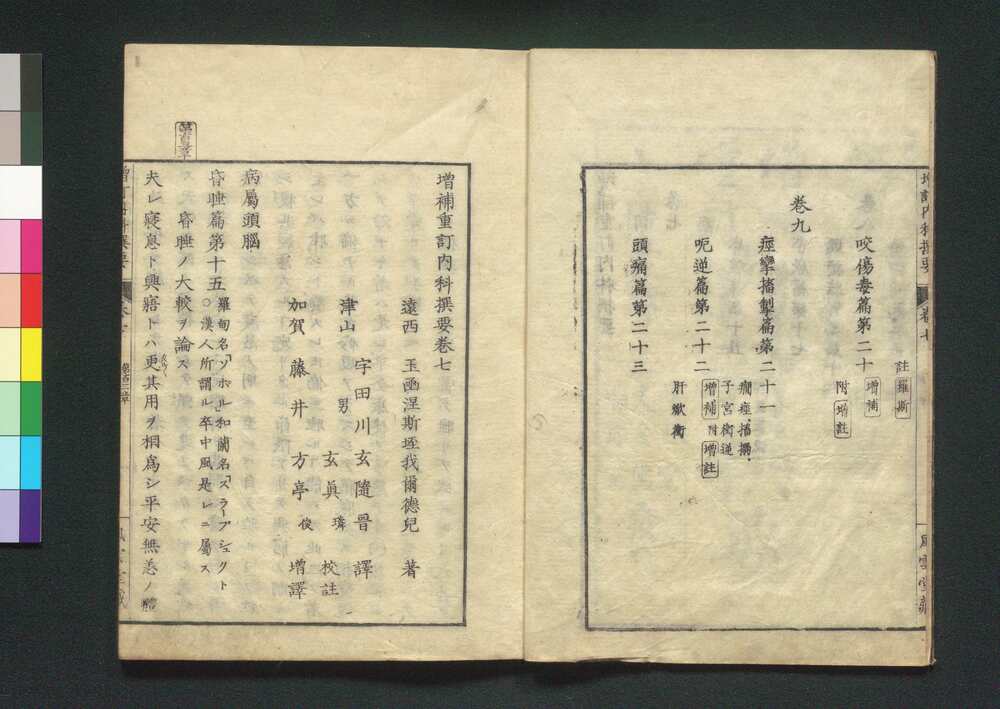 註羅斯
咬傷毒篇第二十 増補
附 増註
卷九
痙攣搐掣篇第二十一 癇痙 搐搦
子宮衝逆
呃逆篇第二十二 増補 附増註
肝歇衝
頭痛篇第二十三
増訂内科撰要 卷七 風雲堂藏
増補重訂内科撰要卷七
遠西 玉函涅斯垤我爾德兒 著
宇田川玄隨晋 譯
津山 男 玄眞璘 校註
加賀 藤井方亭俊 増譯
病屬頭腦
昏睡篇第十五 羅甸名「ソホル」和蘭名「スラープシュクト
○漢人所謂ル卒中風是レニ屬ス
昏睡ノ大較ヲ論ス
夫レ寢息ト興寤トハ更其用ヲ相爲シ平安無恙ノ體